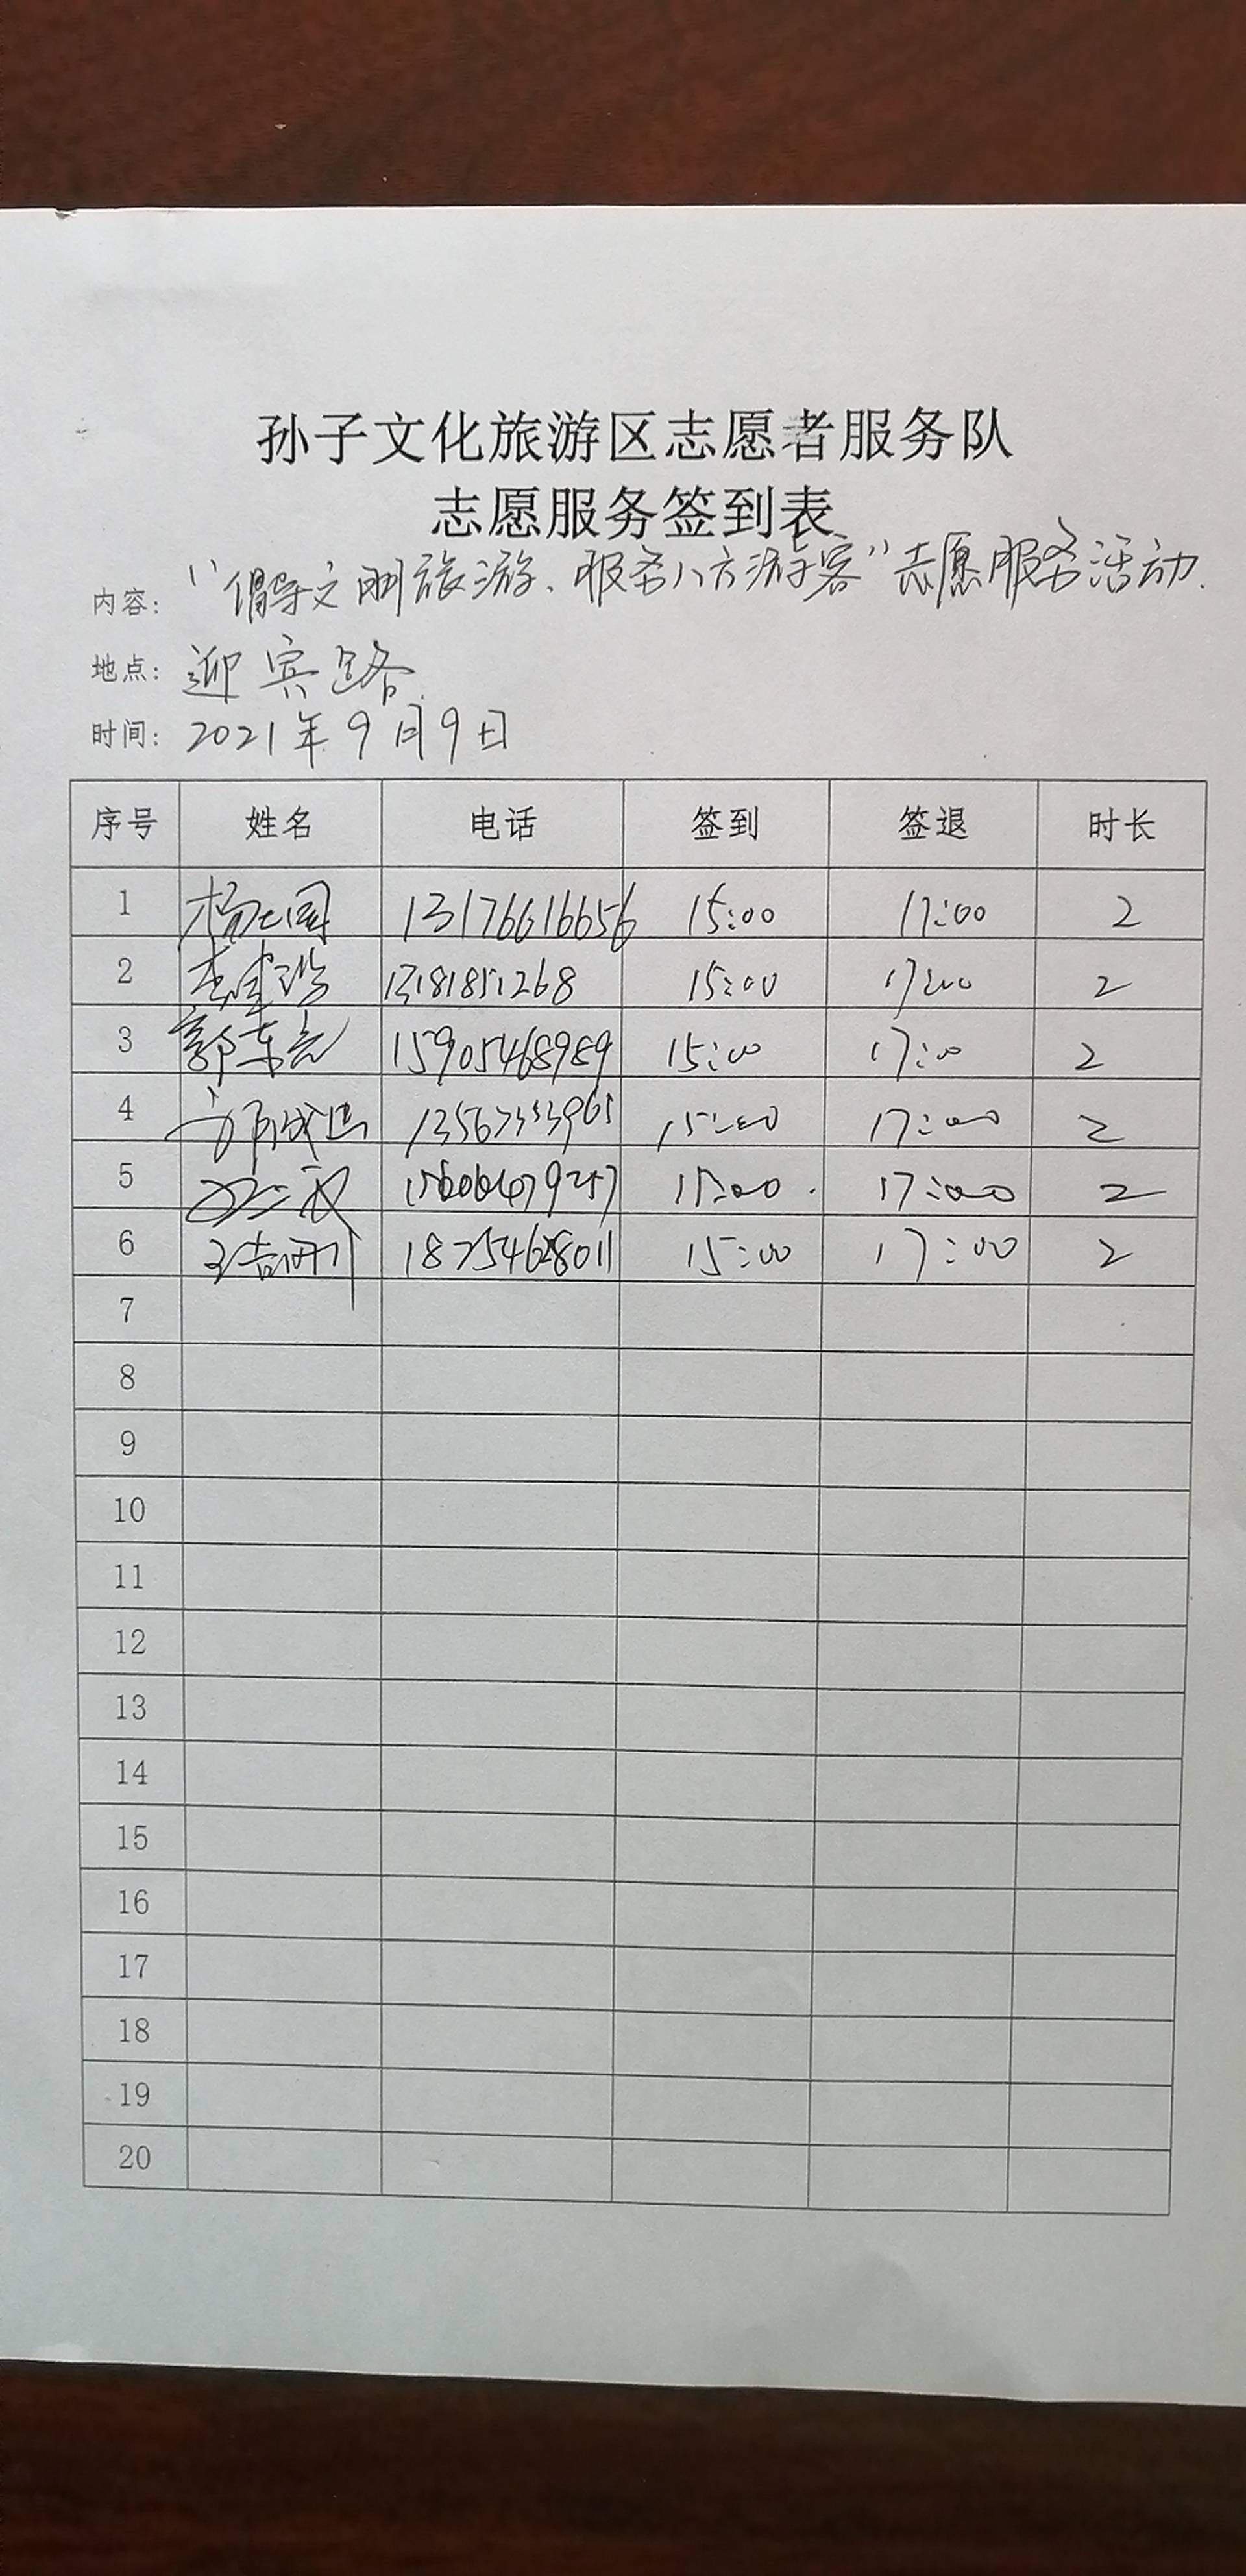 孙子文化旅游区志愿者服务队
志愿服务签到表
内容：“倡导文明旅游、服务八方游客”志愿服务活动.
地点：迎宾路
时间：2021年9月9日
序号 姓名 电话 签到 签退 时长
1 13176616656 15:00 17:00 2
2 15:00 17:00 2
3 郭东亮 15905468989 15:00 17:00 2
4 15:00 17:00 2
5 15:00 17:00 2
6 18754628011 15:00 17:00 2
7
8
9
10
11
12
13
14
15
16
17
18
19
20